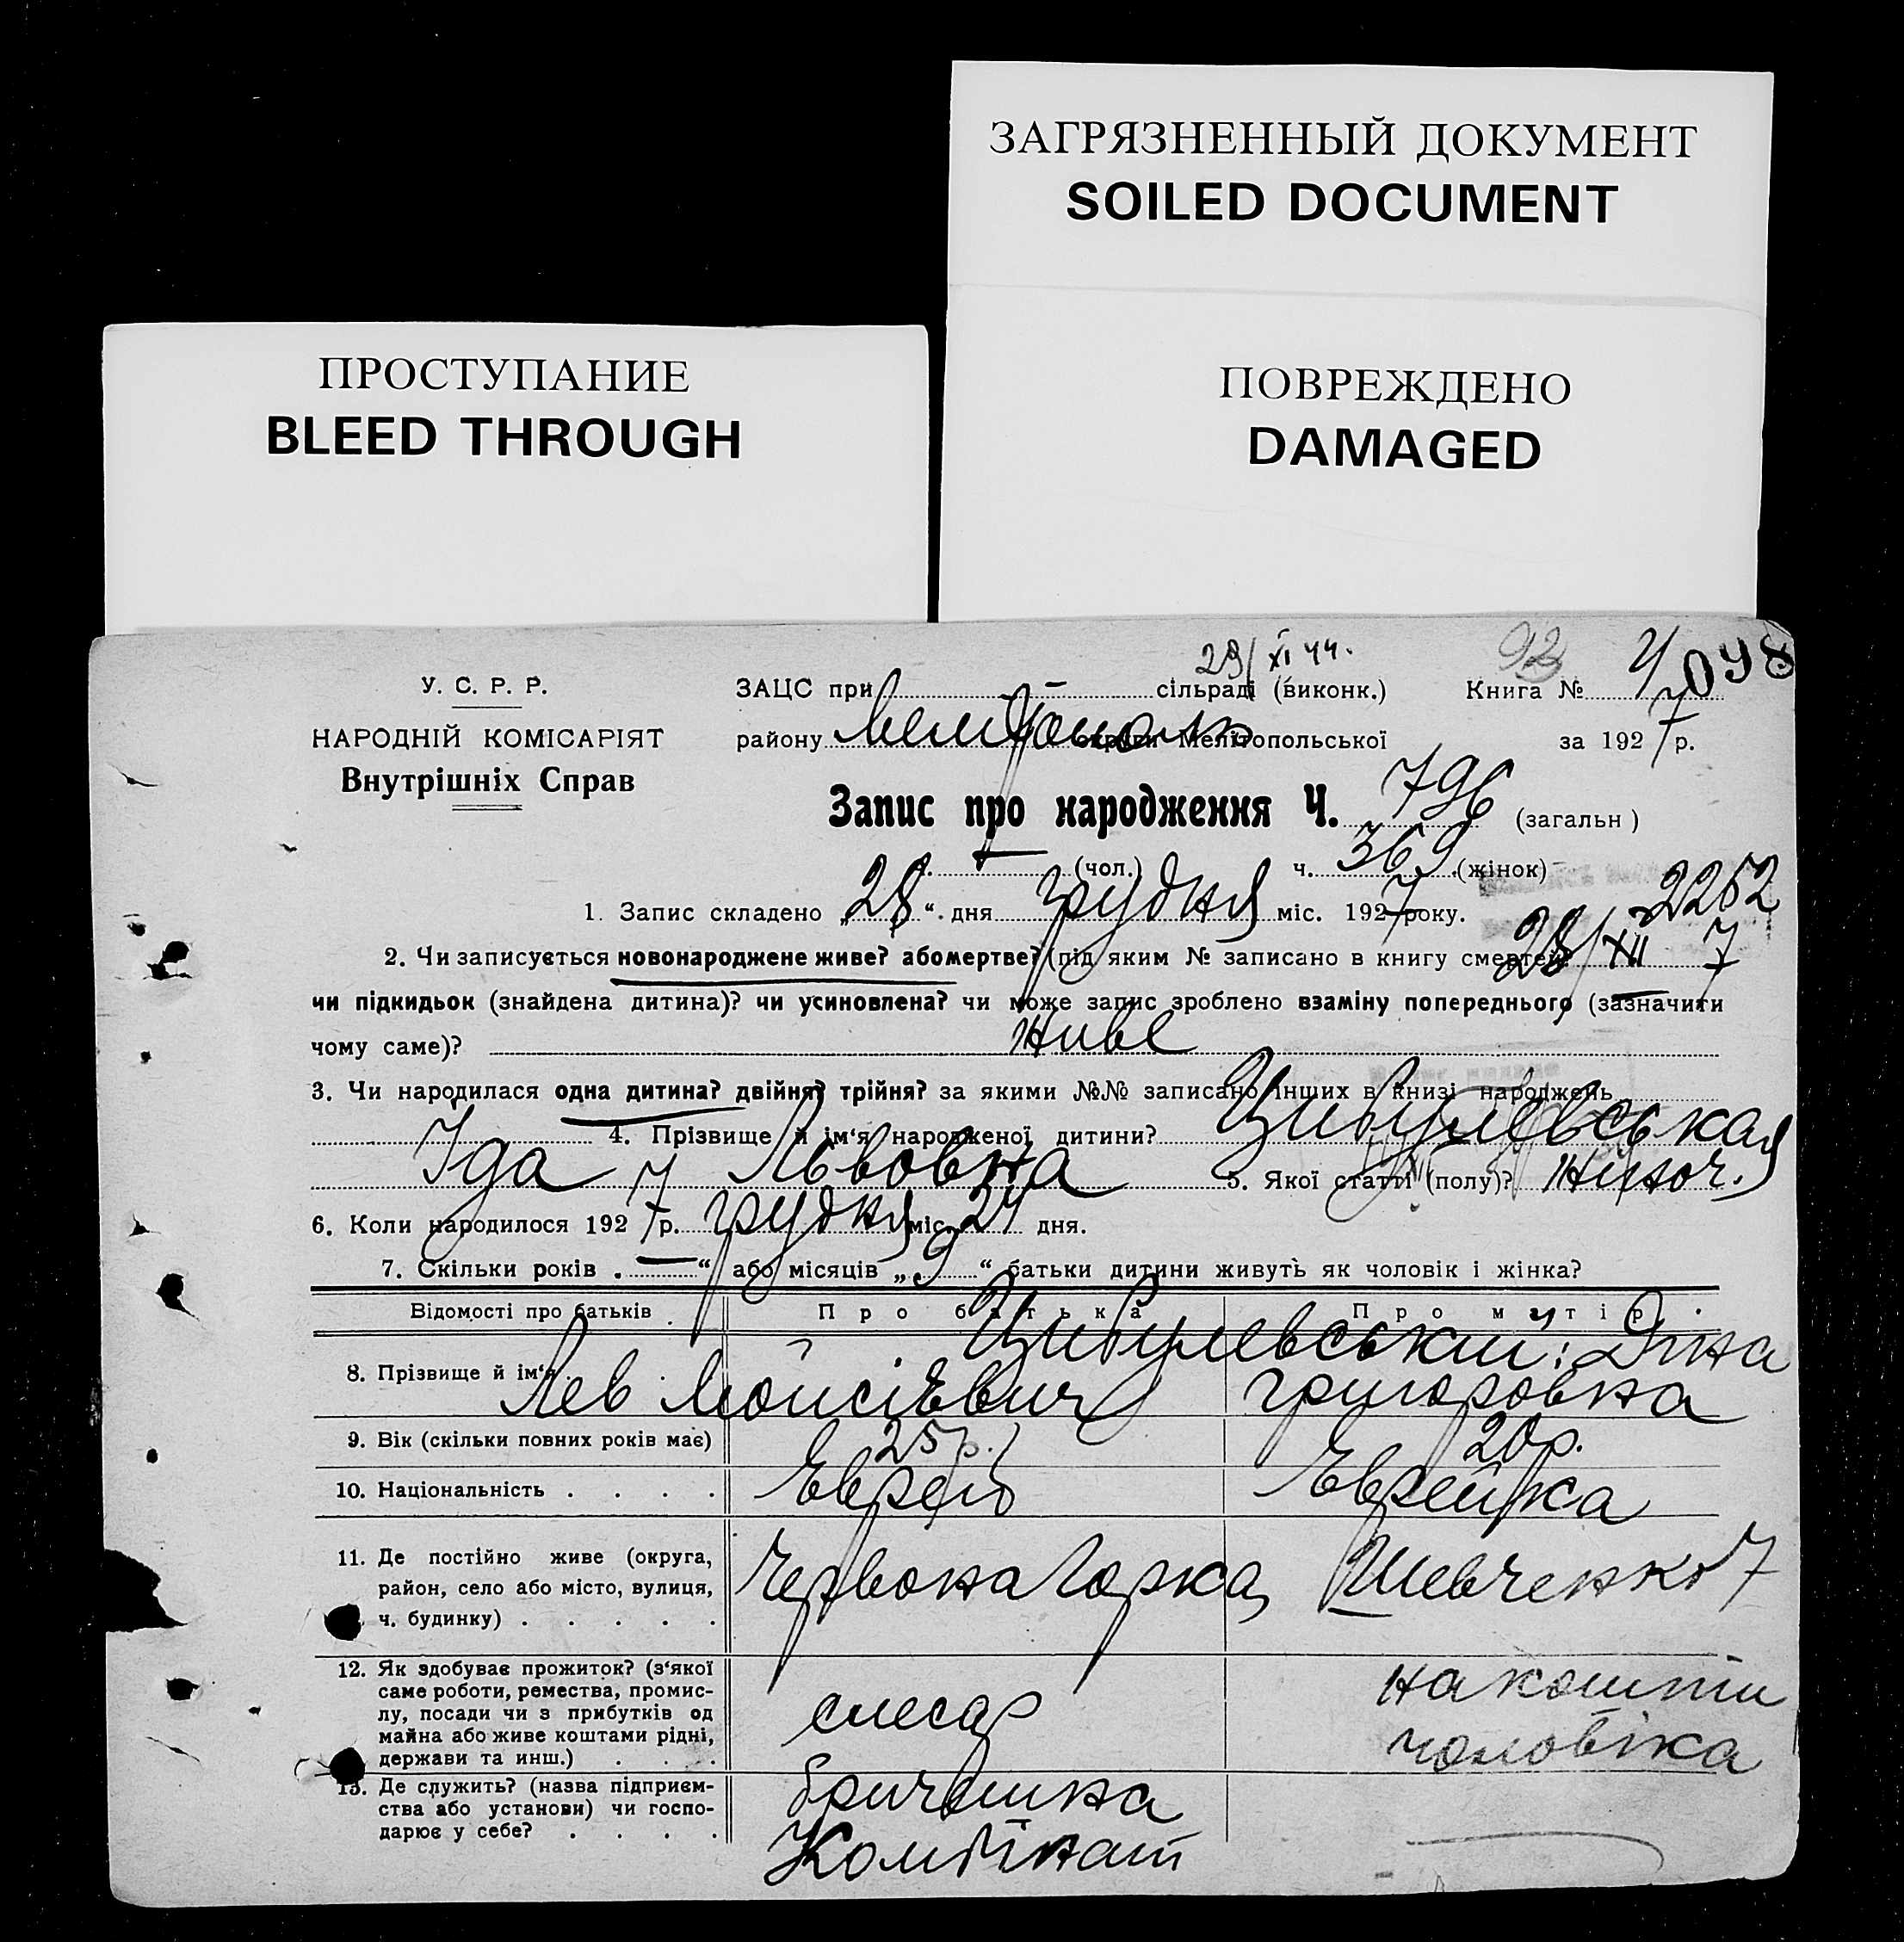 ЗАГРЯЗНЕННЫЙ ДОКУМЕНТ
SOILED DOCUMENT
ПРОСТУПАНИЕ
BLEED THROUGH
ПОВРЕЖДЕНО
DAMAGED
29/XI 44.
93
У. С. Р. Р.
ЗАЦС при – сільраді (виконк.) Книга № 4 098
НАРОДНІЙ КОМІСАРІЯТ
району Мелітополь округи Мелітопольської за 1927 р.
Внутрішніх Справ
Запис про народження Ч. 796 (загальн)
ч. — (чол.) ч. 369 (жінок)
2262
1. Запис складено „28“ дня грудня міс. 1927 року.
28/XII 7
2. Чи записується новонароджене живе? або мертве? (під яким № записано в книгу смертей?
чи підкидьок (знайдена дитина)? чи усиновлена? чи може запис зроблено взаміну попереднього (зазначити
чому саме)? живе
3. Чи народилася одна дитина? двійня? трійня? за якими №№ записано інших в книзі народжень
4. Прізвище й ім‘я народженої дитини? Цибулевськая
Іда Львовна 5. Якої статті (полу)? жіноч.
6. Коли народилося 1927 р. грудня міс. 24 дня.
7. Скільки років „—“ або місяців „9“ батьки дитини живуть як чоловік і жінка?
Відомості про батьків Про батька Про матір
8. Прізвище й ім‘я Цибулевський: Діна
Лев Мойсієвич Григоровна
9. Вік (скільки повних років має) 25 р. 20 р.
10. Національність . . . . Еврей Еврейка
11. Де постійно живе (округа,
район, село або місто, вулиця,
ч. будинку) . . . . .
Червона Горка, Шевченко 7
12. Як здобуває прожиток? (з‘якої
саме роботи, ремества, промис-
лу, посади чи з прибутків од
майна або живе коштами рідні,
держави та инш.) . . .
слесар
на кошти
чоловіка
13. Де служить? (назва підприєм-
ства або установи) чи госпо-
дарює у себе? . . . .
Комбінат